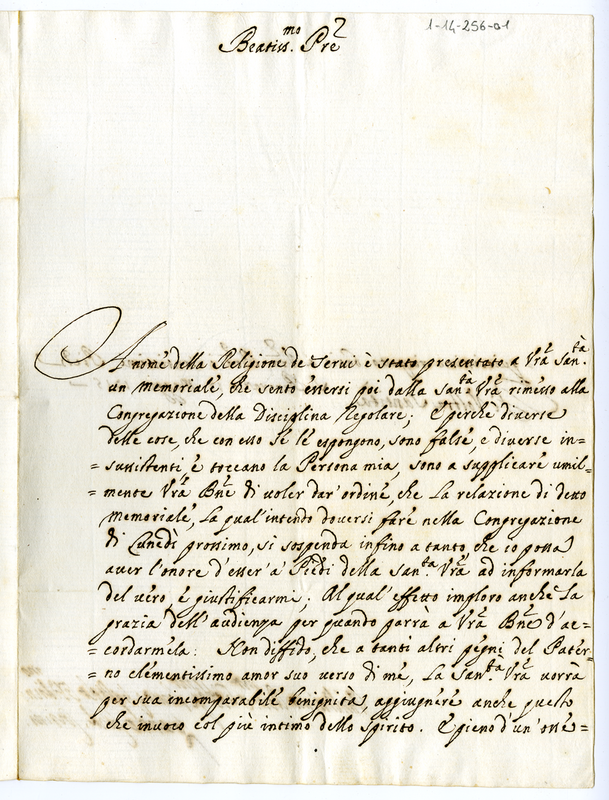 1-14-256-01
Beatiss.mo Pre
A nome della Religione de Servi è stato presentato a Vra San.tà
un memoriale, che sento essersi poi dalla San.tà Vrã rimesso alla
Congregazione della Disciplina Regolare; E perchè diverse
delle cose, che con esso se le espongono, sono false, e diverse in=
=sussistenti e toccano la Persona mia, sono a supplicare umil=
=mente Vrã Bne di voler dar' ordine, che la relazione di detto
memoriale, la qual' intendo doversi fare nella Congregazione
di Lunedì prossimo, si sospenda infino a tanto, che io possa
aver l'onore d'esser' a' Piedi della San.tà Vrã ad informarla
del vero, e giustificarme; Al qual' effetto imploro anche la
grazia dell' audienza per quando parrà a Vrã Bne d'ac=
=cordarmela: Non diffido, che a tanti altri pegni del Pater=
=no clementissimo amor suo verso di me, la San.tà Vrã vorrà
per sua incomparabile benignità, aggiugnere anche questo
che invoco col più intimo dello spirito. E pieno d'un' osse=